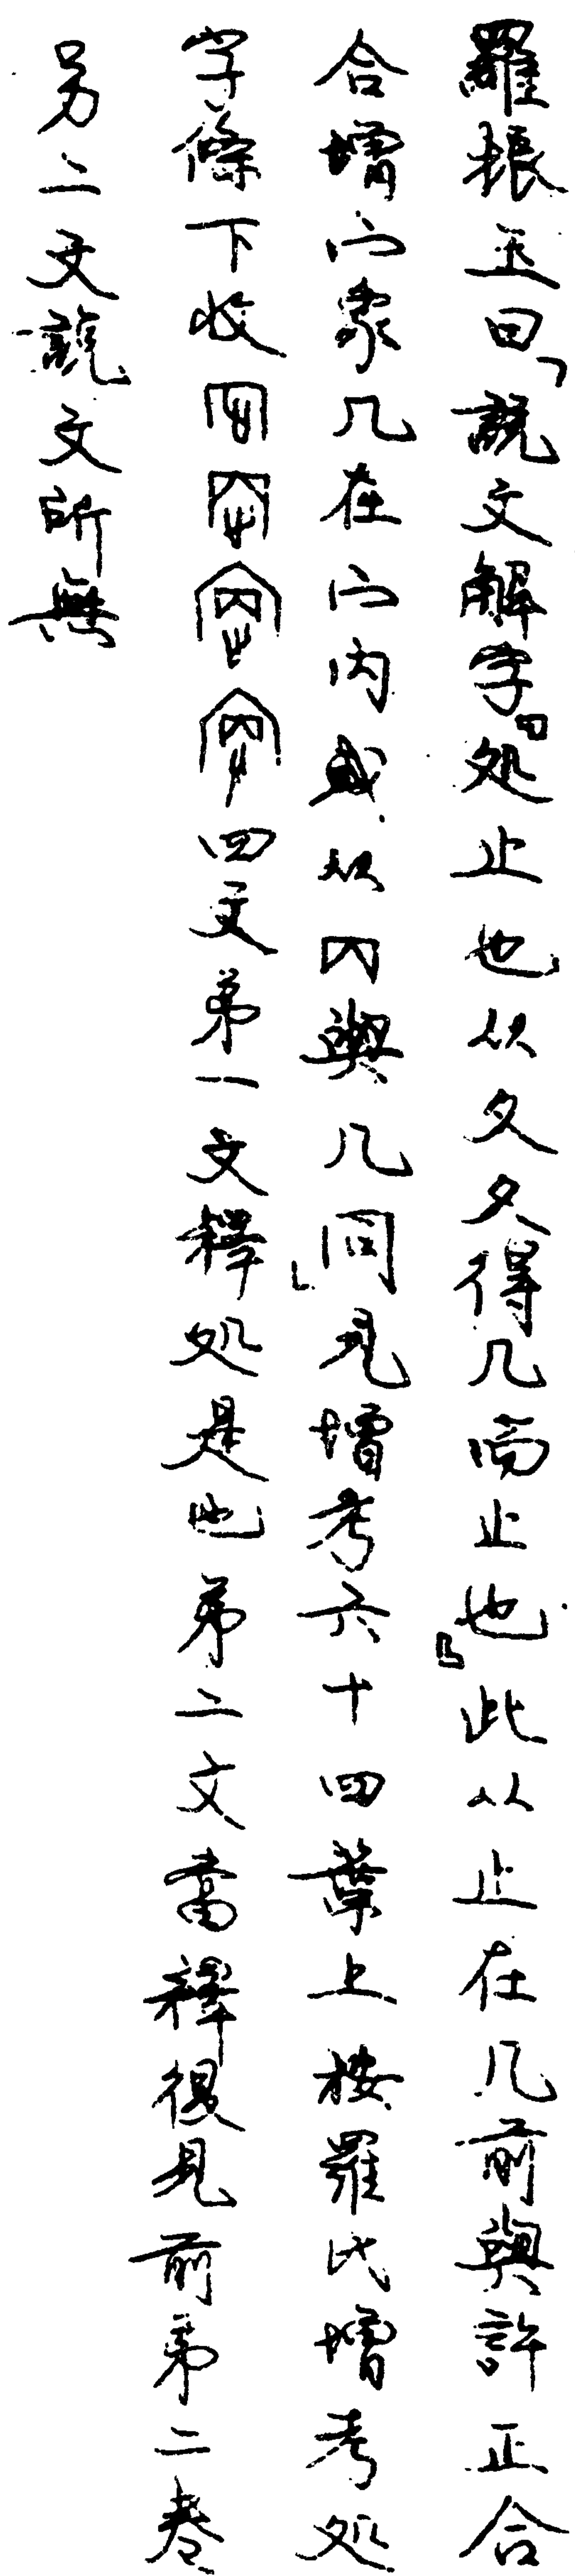 羅振玉曰「說文解字『処止也从夂夂得几而止也』此从止在几前與許正合
合增宀象几在宀内或从内與几同」見增考六十四葉上按羅氏增考処
字條下收四文弟一文釋処是也弟二文當釋復見前弟二卷
另二文說文所無